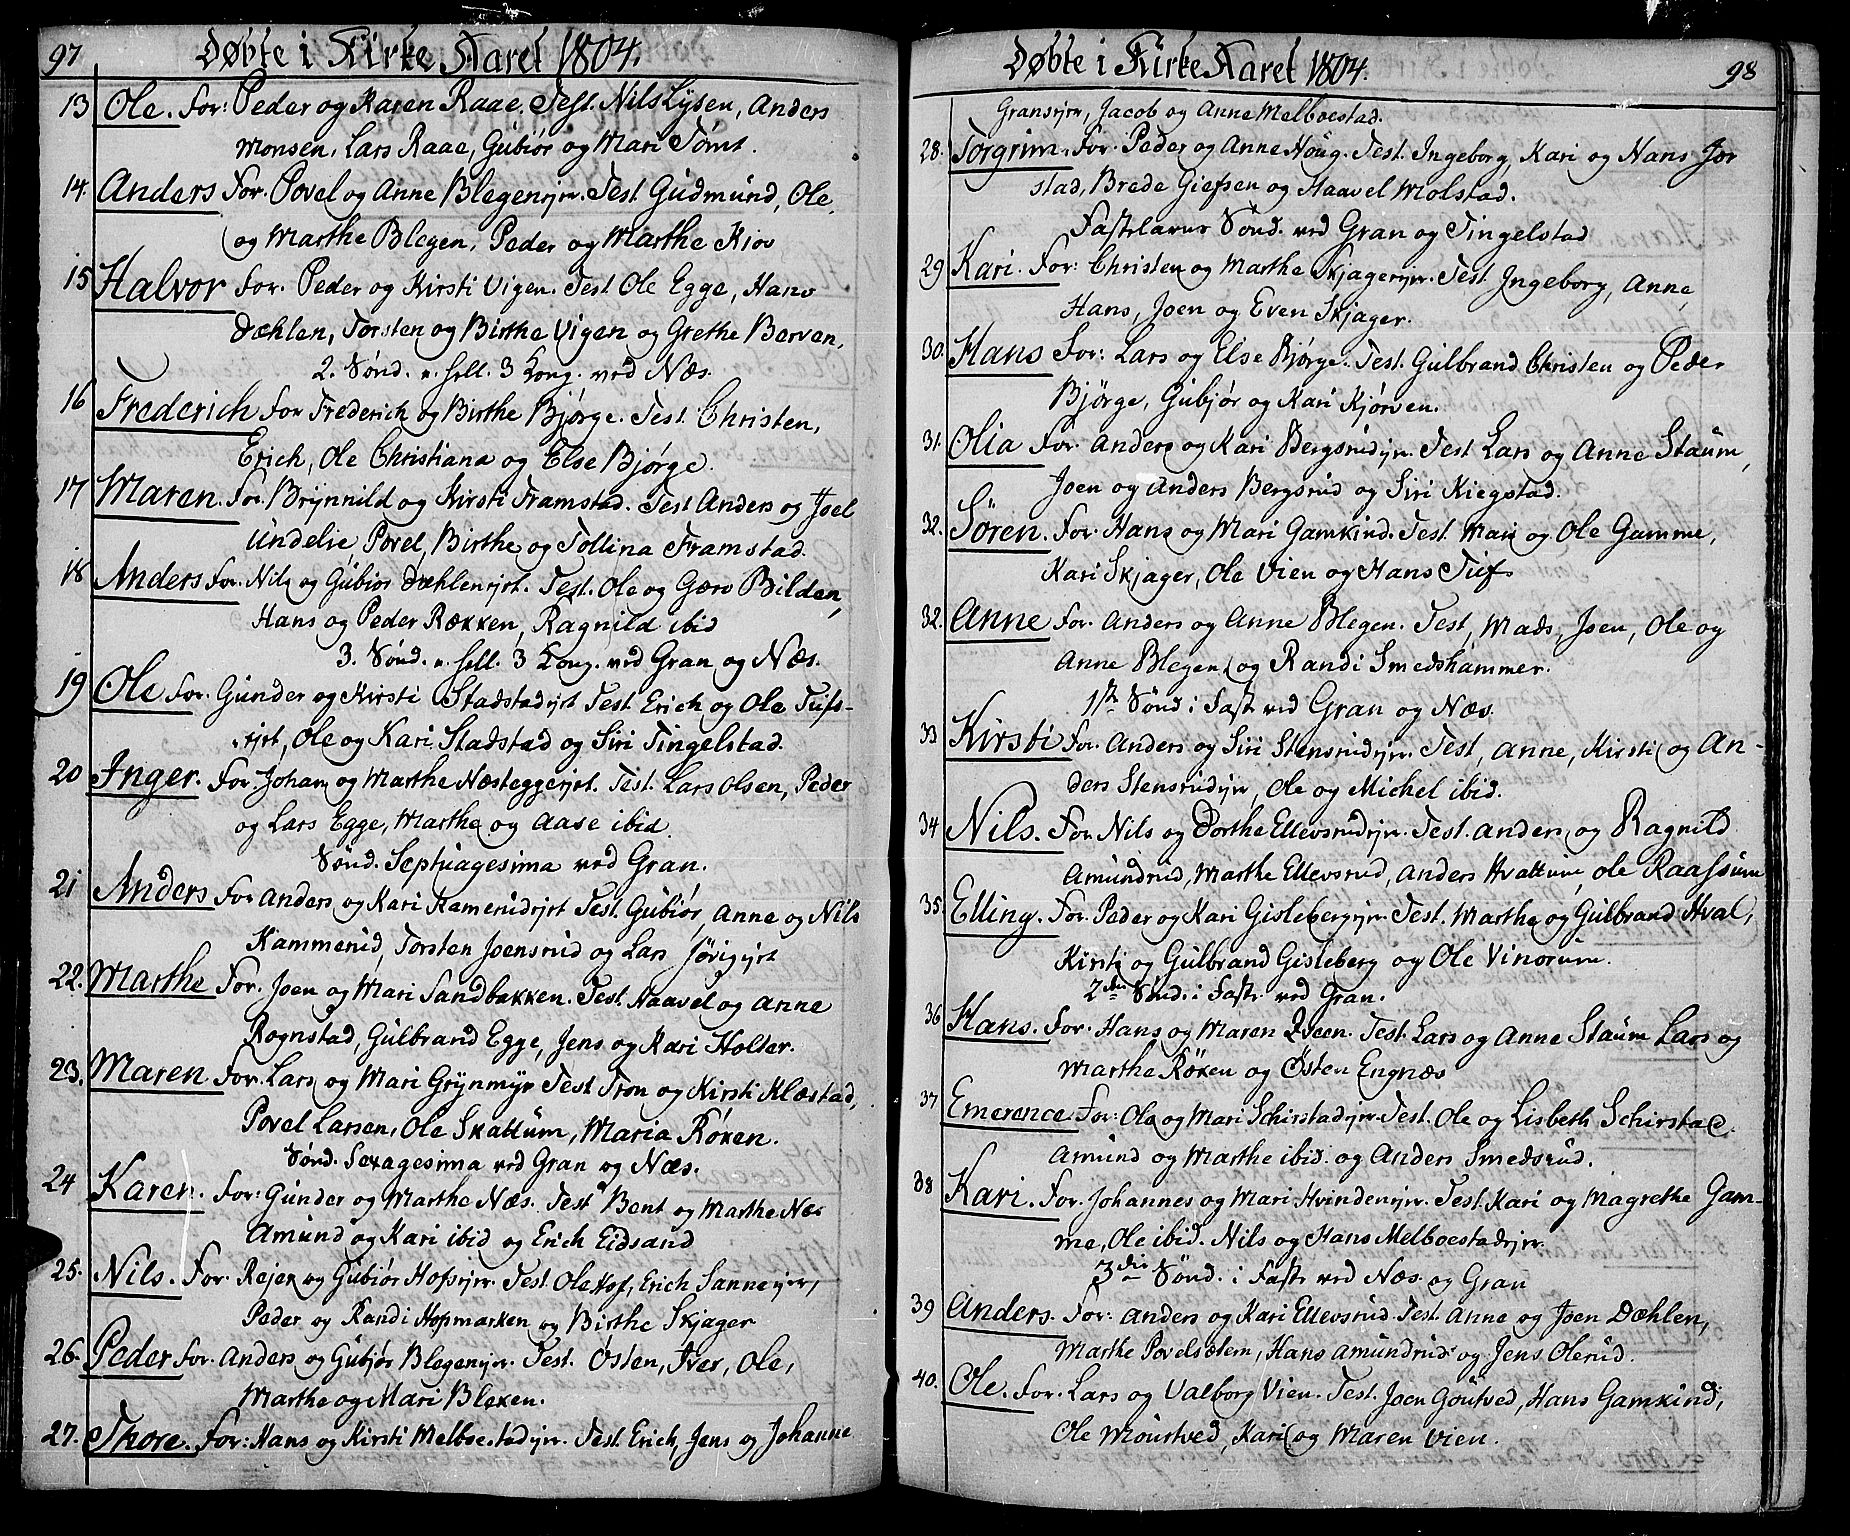 97
Døbte i Kirke Aaret 1804.
13 Ole. For: Peder og Karen Raae. Test. Nils Lysen, Anders
Monsen, Lars Raae, Gubiør og Mari Tømt.
14. Anders For. Povel og Anne Blegenejer. Test. Gudmund, Ole,
og Marthe Blegen, Peder og Marthe Kios
15 Halvor For. Peder og Kirsti Vigen. Test Ole Egge, Hans
Dæhlen, Torsten og Birthe Vigen og Grethe Berven.
2. Sønd. e. hell. 3 Kong. ved Næs.
16 Frederich For Frederich og Birthe Bjørge. Test. Christen,
Erich, Ole Christiana og Else Bjørge.
17 Maren. For. Brynnild og Kirsti Framstad. Test Anders og Joel
Undelie, Povel, Birthe og Tollina Framstad.
18 Anders For. Nils og Gubiør Dæhlenejet. Test. Ole og Goro Bilden,
Hans og Peder Rækken, Ragnild ibid
3. Sønd. e. hell. 3 Kong. ved Gran og Næs.
19 Ole For. Gunder og Kirsti Stadstadejet Test Erich og Ole Tufs-
ejet, Ole og Kari Stadstad og Siri Tingelstad.
20 Inger. For Johan og Marthe Næsteggeejet. Test. Lars Olsen, Peder
og Lars Egge, Marthe og Aase ibid.
Sønd. Septuagesima ved Gran.
21 Anders For Anders og Kari Kamerudejet Test. Gubiør, Anne og Nils
Kammerud, Torsten Joensrud og Lars
22. Marthe For. Joen og Mari Sandbakken. Test. Haavel og Anne
Rognstad, Gulbrand Egge, Jens og Kari Holter.
23. Maren For. Lars og Mari Grynmyr Test Tron og Kirsti Klæstad,
Povel Larsen, Ole Skattum, Maria Røken.
Sønd. Sexagesima ved Gran og Næs.
24 Karen. For: Gunder og Marthe Næs. Test Bent og Marthe Næs
Amund og Kari ibid og Erich Eidsand
25. Nils. For. Rejer og Gubiør Hofsejer. Test Ole Hof, Erich Sannejer,
Peder og Randi Hopmarken og Birthe Skjager
26. Peder For. Anders og Gubjør Blegenejer. Test. Østen, Iver, Ole,
Marthe og Mari Bleken.
27. Thore. For: Hans og Kirsti Melboestadejer. Test Erich, Jens og Johanne
Døbte i Kirke Aaret 1804.
98
Gransejer, Jacob og Anne Melboestad.
28. Torgrim. For. Peder og Anne Houg. Test. Ingeborg, Kari og Hans Jor
stad, Brede Giefsen og Haavel Molstad.
Fastelavns Sønd. ved Gran og Tingelstad
29 Kari. For: Christen og Marthe Skjagerejer. Test Ingeborg, Anne,
Hans, Joen og Even Skjager.
30. Hans For: Lars og Else Bjørge. Test. Gulbrand Christen og Peder
Bjørge, Gubjør og Kari Kjørven.
31. Olia For. Anders og Kari Bergsrudejer. Test Lars og Anne Staum,
Joen og Anders Bergsrud og Siri Kiegstad.
32. Søren. For. Hans og Mari Gamkind. Test. Mari og Ole Gamme,
Kari Skjager, Ole Vien og Hans Tufs
32. Anne For. Anders og Anne Blegen. Test, Mads, Joen, Ole og
Anne Blegen, og Randi Smedshammer.
1ste Sønd i Fast ved Gran og Næs.
33 Kirsti For. Anders og Siri Stensrudejer. Test, Anne, Kirsti og An-
ders Stensrudejer, Ole og Michel ibid.
34 Nils. For. Nils og Dorthe Ellevsrudejer. Test. Anders og Ragnild
Amundrud, Marthe Ellevsrud, Anders Hvattum, Ole Raassum
35 Elling. For. Peder og Kari Gislebergejer. Test. Marthe og Gulbrand Hval,
Kirsti og Gulbrand Gisleberg og Ole Vinorum.
2den Sønd. i Faste ved Gran.
36 Hans. For. Hans og Maren Qveen. Test. Lars og Anne Staum Lars og
Marthe Røken og Østen Engnæs
37 Emerence For: Ole og Mari Schirstadejer. Test. Ole og Lisbeth Schirstad,
Amund og Marthe ibid. og Anders Smedsrud.
38 Kari. For. Johannes og Mari Hvindenejer. Test. Kari og Magrethe Gam-
me, Ole ibid. Nils og Hans Melboestadejer.
3die Sønd. i Faste ved Næs. og Gran
39 Anders. For: Anders og Kari Ellevsrud. Test. Anne og Joen Dæhlen,
Marthe Povelsætern, Hans Amundrud og Jens Olerud.
40. Ole. For. Lars og Valborg Vien. Test. Joen Goutved, Hans Gamkind,
Ole Mourtved, Kari og Maren Vien.